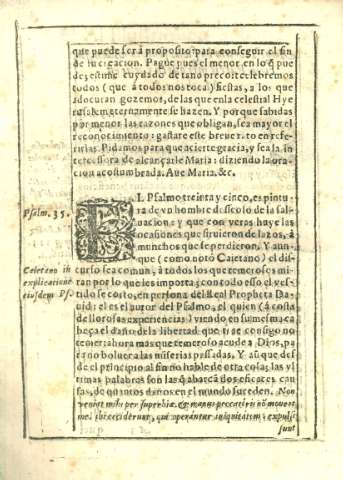 que puede ser à proposito para conseguir el fin
de su creacion. Pague pues el menor, en lo q̃ pue
de, y estime cuydado de tanto precio: celebremos
todos (que à todos nos toca) fiestas, a los que
adoran gozemos, de las que en la celestial Hye
rusalem eternamente se hazen. Y porque sabidas
por menor las razones que obligan, sea mayor el
reconocimiento: gastare este breue rato en refe-
rirlas. Pidamos para que acierte gracia, y sea la in
tercessora de alcançarle Maria: diziendo la ora
cion acostumbrada. Aue Maria. &c.
Psalm. 35.
EL Psalmo treinta y cinco, es pintu
ra de vn hombre discolo de la sal-
uacion: y que con veras huye las
ocasiones que siruieron de lazos, à
munchos que se perdieron. Y aun-
Caietano in
explicatione
eiusdem Ps.
que (como notò Caietano) el dis
curso sea comun, à todos los que temerosos mi
ran por lo que les importa; con todo esso el ves-
tido se corto, en persona del Real Propheta Da
uid: el es el autor del Psalmo, el quien (à costa
de llorosas experiencias) viendo en su mesma ca
beça el daño de la libertad que tiene consigo no
temer: ahora mas que temeroso acude a Dios, pa
ra no boluer a las miserias passadas. Y aũ que des
de el principio al fin no hable de otra cosa; las vl
timas palabras son las q̃ abarcã dos eficaces cau-
sas, de quantos daños en el mundo suceden. Non
veniat mihi pes superbiæ, & manus peccatoris nõ moueat
me. ibi ceciderunt, qui operantur iniquitatem: expulsi
sunt